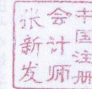 中国注册
会计师
张新发